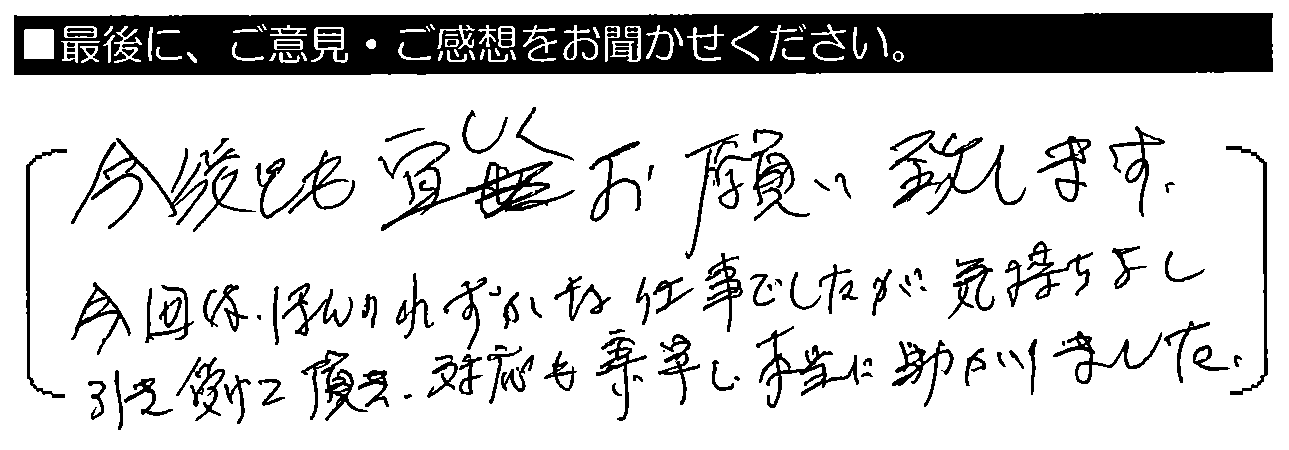 ■最後に、ご意見・ご感想をお聞かせください。
今後とも宜しくお願い致します.
今回は、ほんのわずかな仕事でしたが気持ちよし
引き受けて頂き、対応も素早し、本当に助かりました.